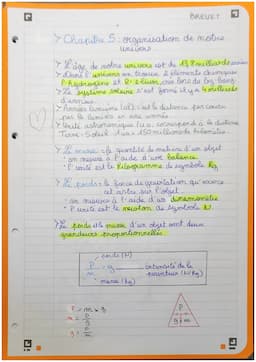 BREVET
> Chapitre 5 : organisation de notre
univers
> L'âge de notre univers est de 13,8 milliards
> Dans l'univers on trouve 2 éléments chimiques
l'hydrogène et l'hélium
> Le système solaire s'est formé il y a 4 milliards
d'années.
> Année lumière (al) : c'est la distance parcourue
par la lumière en une année
> Unité astronomique (u.a) correspond à la distance
Terre-Soleil 1 ua = 150 millions de kilomètres
> La masse : la quantité de matière d'un objet
- on mesure à l'aide d'une balance
- l'unité est le kilogramme de symbole Kg
> Le poids : la force de gravitation qu'exerce
cet astre sur l'objet
- on mesure à l'aide d'un dynamomètre
- l'unité est le newton de symbole N
> Le poids et la masse d'un objet sont deux
grandeurs proportionnelles.
poids (N)
P
= g
m
intensité de la
pesanteur (N/Kg)
masse (kg)
P = m × g
m = P/g
g = P/m
P
g × m